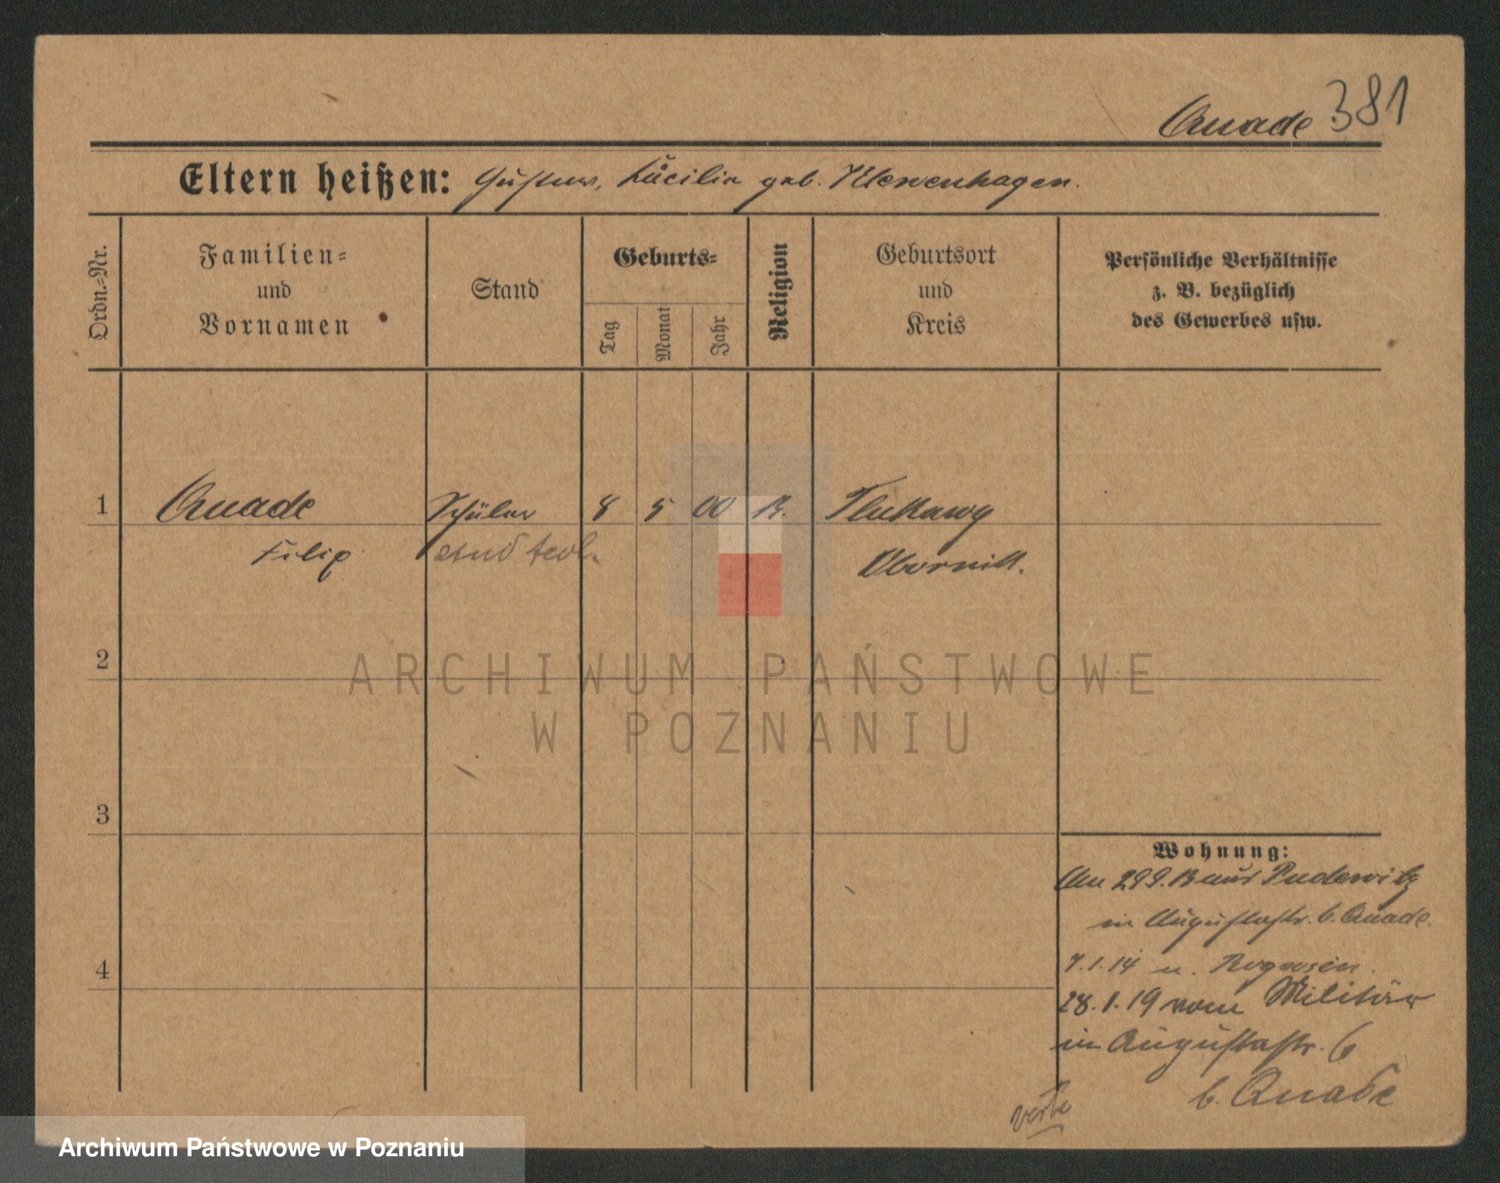 Quade 381
Eltern heißen: Gustav, Cäcilia geb. Klewenhagen.
Ordn.=Nr.
Familien=
und
Vornamen
Stand
Geburts=
Tag
Monat
Jahr
Religion
Geburtsort
und
Kreis
Persönliche Verhältnisse
z. B. bezüglich
des Gewerbes usw.
1 Quade Schüler 8 5 00 K. Tlukawy
Filip stud teol. Obornik.
2
3
4
Wohnung:
aus Pudewitz
in Augustastr. b. Quade.
7.1.14 n. Rogasen.
28.1.19 vom Militär
in Augustastr. 6
b. Quade
verte
ARCHIWUM PAŃSTWOWE
W POZNANIU
Archiwum Państwowe w Poznaniu